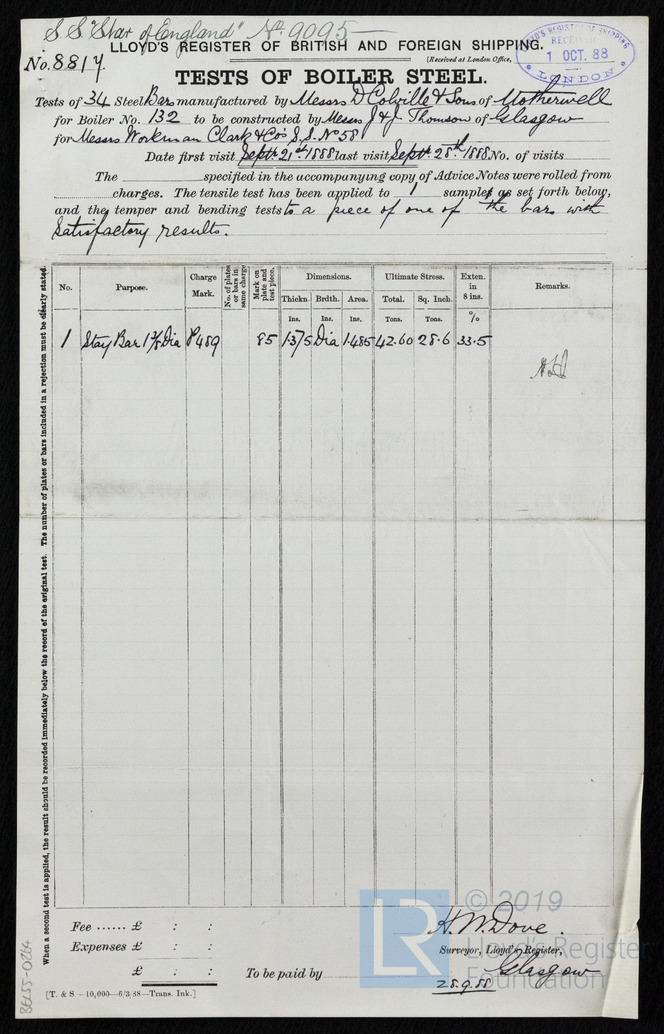 S.S. "Star of England" No. 9095
LLOYD'S REGISTER OF BRITISH AND FOREIGN SHIPPING.
No. 8817
(Received at London Office,
LLOYD'S REGISTER OF SHIPPING
RECEIVED
1 OCT. 88
LONDON
TESTS OF BOILER STEEL.
Tests of 34 Steel Bars manufactured by Messrs D Colville & Sons of Motherwell
for Boiler No. 132 to be constructed by Messrs J & J Thomson of Glasgow
for Messrs Workman Clark & Co's S.S. No 58
Date first visit Sept. 21st 1888 last visit Sept. 28th 1888 No. of visits
The specified in the accompanying copy of Advice Notes were rolled from
charges. The tensile test has been applied to 1 samples as set forth below,
and the temper and bending tests to a piece of one of the bars with
satisfactory results.
When a second test is applied, the result should be recorded immediately below the record of the original test. The number of plates or bars included in a rejection must be clearly stated.
No. Purpose. Charge Mark. No. of plates or bars in same charge Mark on plate and test piece. Dimensions. Ultimate Stress. Exten. in 8 ins. Remarks.
Thickn. Brdth. Area. Total. Sq. Inch.
Ins. Ins. Ins. Tons. Tons. %
1 Stay Bar 1 3/8 Dia P489 85 1.375 Dia 1.485 42.60 28.6 33.5
Fee ...... £ : :
Expenses £ : :
£ : :
To be paid by
H. W. Dove.
Surveyor, Lloyd's Register,
Glasgow
28.9.88
[T. & S.—10,000—6/3/88—Trans. Ink.]
LR
© 2019
Lloyd's Register
Foundation